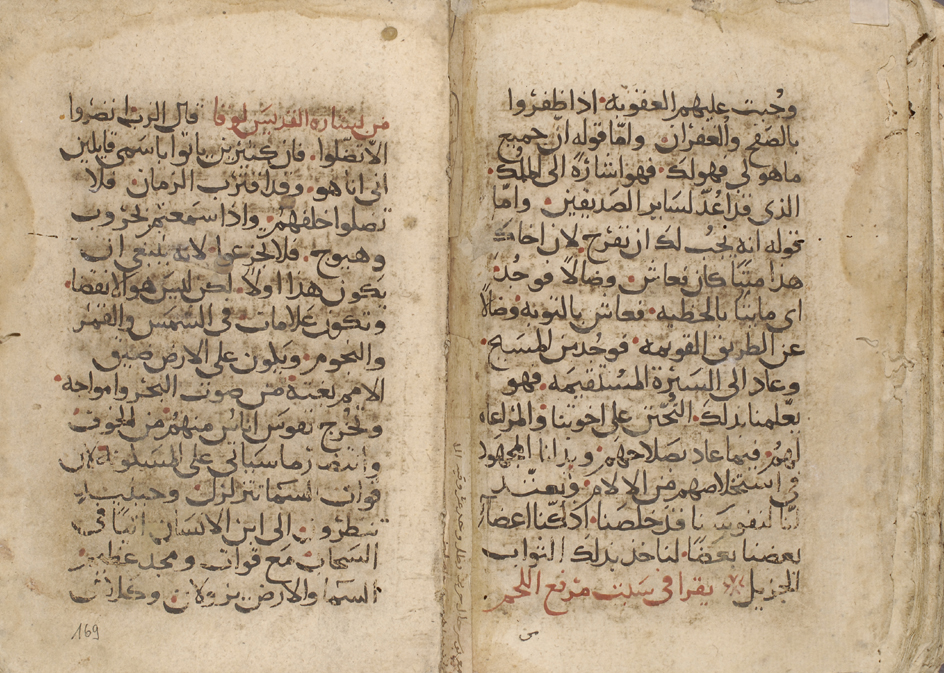 وجبت عليهم العقوبه اذا ظفروا
بالصفح والغفران وامّا قوله انّ جميع
ما هو لي فهو لك فهو اشارة الى الملك
الذي قد اعدّ لساير الصديقين وامّا
قوله انه يجب لك ان تفرح لان اخاك
هذا ميتًا كان فعاش وضالًا فوجد
اي مايتًا بالخطيه فعاش بالتوبه وضالًا
عن الطريق القويمه فوجد من المسيح
وعاد الى السيرة المستقيمه فهو
يعلمنا بذلك التحنن على اخوتنا والمراعاه
لهم فيما عاد بصلاحهم وبذلنا المجهود
في استخلاصهم من الالام ويعتد
لنفوسنا قد خلصنا اذ كنا اعضآ
بعضنا بعضًا لناخذ بذلك الثواب
الجزيل يقرا في سبت مرفع اللحم
من بشارة القديس لوقا قال الرب انضروا
الا تضلوا فان كثيرين ياتوا باسمي قايلين
اني انا هو وقد اقترب الزمان فلا
تضلوا خلفهم واذا سمعتم بحروب
وهيوج فلا تجزعوا لانه ينبغي ان
يكون هذا اولًا لكن ليس هو الانقضا
وتكون علامات في الشمس والقمر
والنجوم ويكون على الارض ضيق
الامم بغتة من صوت البحر وامواجه
وتخرج نفوس اناس منهم من الخوف
وانتضار ما سياتي على المسكونه لان
قوات السما تتزلزل وحينيذ
تنظرون الى ابن الانسان اتيًا في
السحاب مع قوات ومجد عظيم
السما والارض يزولان وكلامي
169